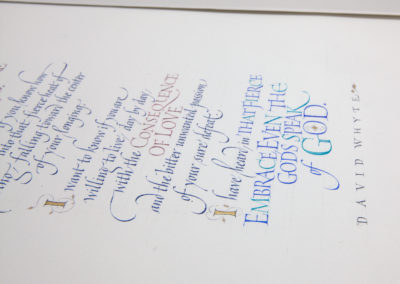 you know how
into that fierce heat of
falling toward the center
of your longing.
I want to know if you are
willing to live, day by day,
with the CONSEQUENCE
OF LOVE
and the bitter unwanted passion
of your sure defeat.
I have heard, in THAT FIERCE
EMBRACE, EVEN THE
GODS SPEAK
of GOD.
DAVID WHYTE